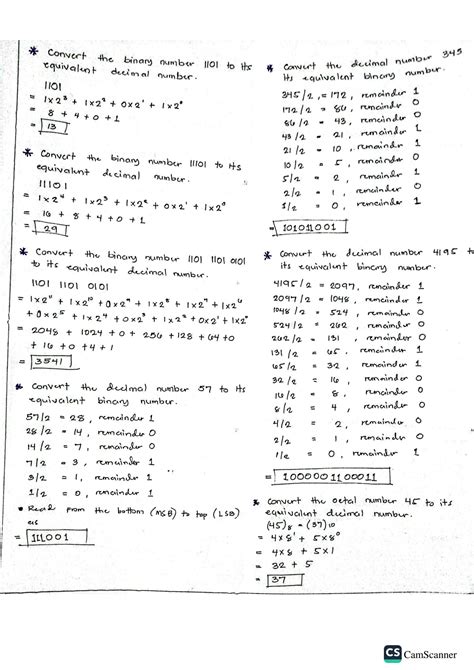 * Convert the binary number 1101 to its
equivalent decimal number.
1101
= 1x2³ + 1x2² + 0x2¹ + 1x2⁰
= 8 + 4 + 0 + 1
= 13
* Convert the binary number 11101 to its
equivalent decimal number.
11101
= 1x2⁴ + 1x2³ + 1x2² + 0x2¹ + 1x2⁰
= 16 + 8 + 4 + 0 + 1
= 29
* Convert the binary number 1101 1101 0101
to its equivalent decimal number.
1101 1101 0101
= 1x2¹¹ + 1x2¹⁰ + 0x2⁹ + 1x2⁸ + 1x2⁷ + 1x2⁶
+ 0x2⁵ + 1x2⁴ + 0x2³ + 1x2² + 0x2¹ + 1x2⁰
= 2048 + 1024 + 0 + 256 + 128 + 64 + 0
+ 16 + 0 + 4 + 1
= 3541
* Convert the decimal number 57 to its
equivalent binary number.
57/2 = 28, remainder 1
28/2 = 14, remainder 0
14/2 = 7, remainder 0
7/2 = 3, remainder 1
3/2 = 1, remainder 1
1/2 = 0, remainder 1
• Read from the bottom (MSB) to top (LSB)
as
= 111001
* Convert the decimal number 345
its equivalent binary number.
345/2 = 172, remainder 1
172/2 = 86, remainder 0
86/2 = 43, remainder 0
43/2 = 21, remainder 1
21/2 = 10, remainder 1
10/2 = 5, remainder 0
5/2 = 2, remainder 1
2/2 = 1, remainder 0
1/2 = 0, remainder 1
= 101011001
* Convert the decimal number 4195 to
its equivalent binary number.
4195/2 = 2097, remainder 1
2097/2 = 1048, remainder 1
1048/2 = 524, remainder 0
524/2 = 262, remainder 0
262/2 = 131, remainder 0
131/2 = 65, remainder 1
65/2 = 32, remainder 1
32/2 = 16, remainder 0
16/2 = 8, remainder 0
8/2 = 4, remainder 0
4/2 = 2, remainder 0
2/2 = 1, remainder 0
1/2 = 0, remainder 1
= 1000001100011
* Convert the octal number 45 to its
equivalent decimal number.
(45)₈ = (37)₁₀
= 4x8¹ + 5x8⁰
= 4x8 + 5x1
= 32 + 5
= 37
CS CamScanner